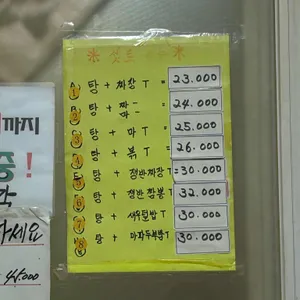 * 셋트 메뉴 *
A 1 탕 + 짜장 T = 23.000
B 2 탕 + 짜 짜 = 24.000
3 탕 + 마 T = 25.000
4 탕 + 볶 T = 26.000
5 탕 + 쟁반짜장 T = 30.000
6 탕 + 쟁반짬뽕 T = 32.000
7 탕 + 새우덮밥 T 30.000
8 탕 + 마파두부밥 T 30.000
까지
중!
각
하세요
45.000